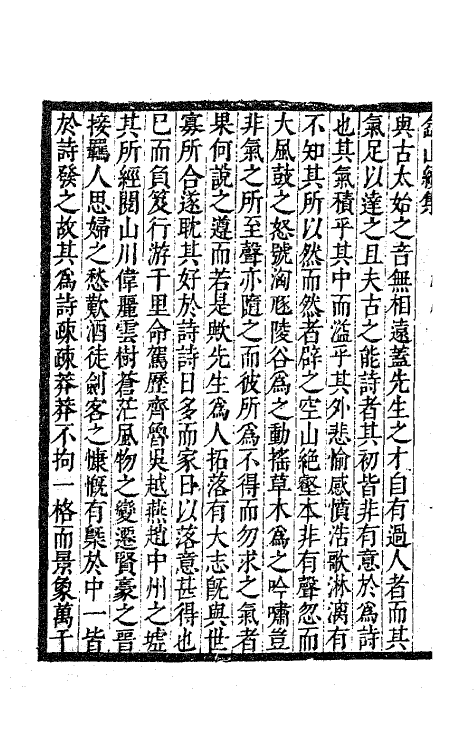 與古太始之音無相遠蓋先生之才自有過人者而其
氣足以達之且夫古之能詩者其初皆非有意於為詩
也其氣積乎其中而溢乎其外悲愉感憤浩歌淋漓有
不知其所以然而然者辟之空山絕壑本非有聲忽而
大風鼓之怒號洶豗陵谷為之動搖草木為之吟嘯豈
非氣之所至聲亦隨之而彼所為不得而勿求之氣者
果何說之遵而若是歟先生為人拓落有大志旣與世
寡所合遂耽其好於詩詩日多而家日以落意甚得也
已而負笈行游千里命駕歷齊魯吳越燕趙中州之墟
其所經閱山川偉麗雲樹蒼茫風物之變遷賢豪之晉
接羈人思婦之愁歎酒徒劍客之慷慨有槩於中一皆
於詩發之故其為詩疎疎莽莽不拘一格而景象萬千